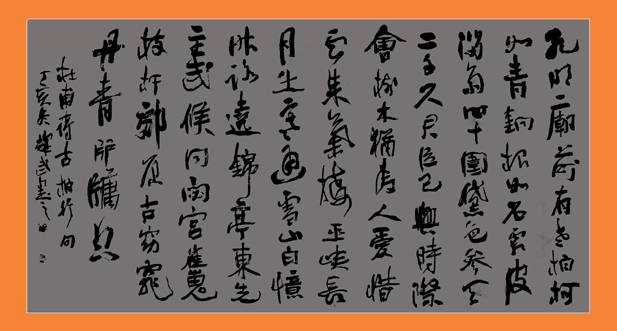 孔明廟前有老柏柯
如青銅根如石霜皮
溜雨四十圍黛色參天
二千尺君臣已與時際
會樹木猶為人愛惜
雲來氣接巫峽長
月出寒通雪山白憶
昨路遶錦亭東先
主武侯同閟宮崔嵬
枝幹郊原古窈窕
丹青戶牖空
杜甫詩古柏行句
丁亥冬